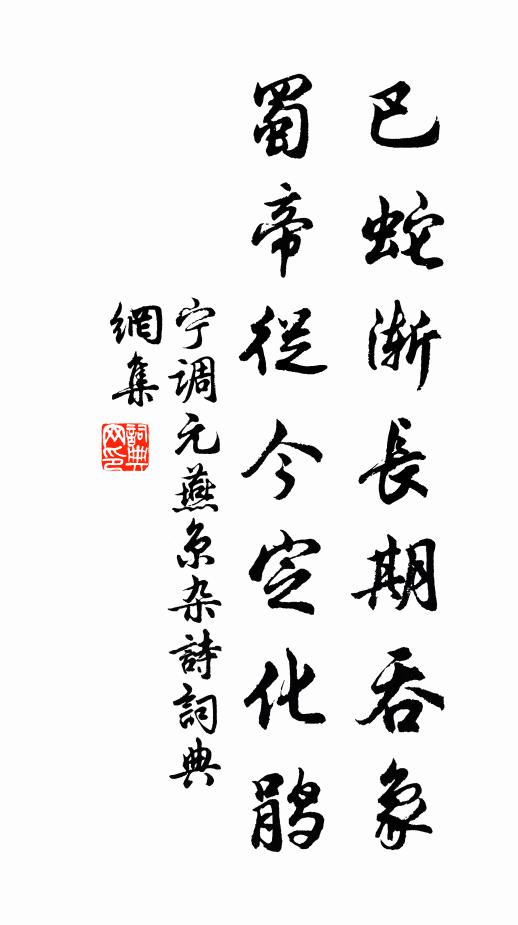 巴蛇漸長期吞象
蜀帝從今定化鹃
宁调元燕京杂詩詞典
網集
詞典
网印